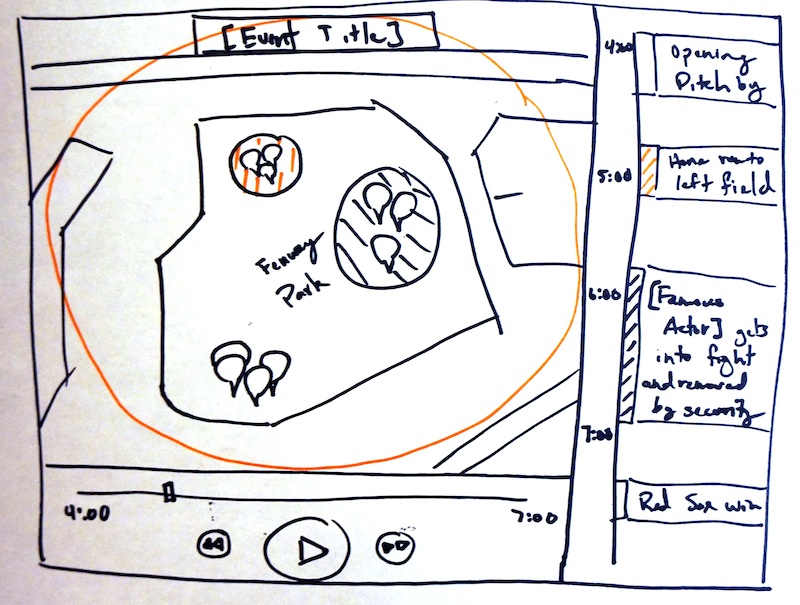 [Event Title]
Fenway
Park
4:00
7:00
4:00
Opening
Pitch by
5:00
Home run to
left field
6:00
[Famous
Actor] gets
into fight
and removed
by security
7:00
Red Sox win